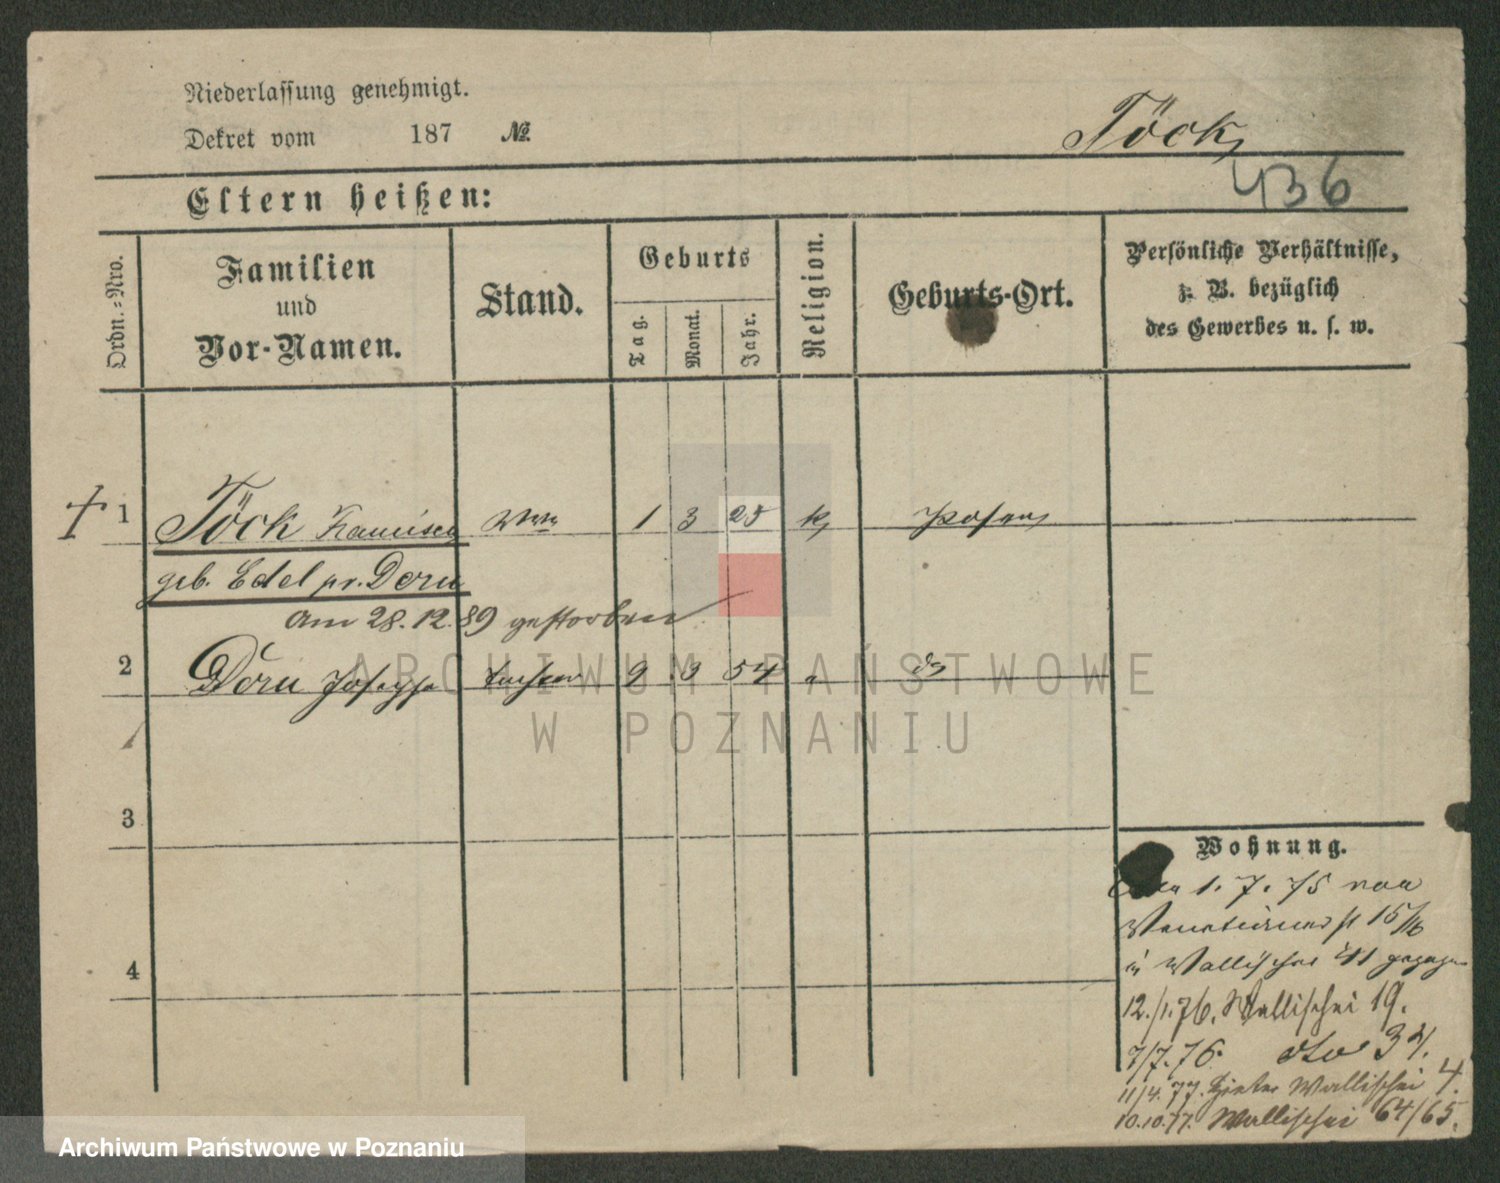 Niederlassung genehmigt.
Dekret vom 187 №
Töck
436
Eltern heißen:
Ordn.-Nro.
Familien
und
Vor-Namen.
Stand.
Geburts
Tag.
Monat.
Jahr.
Religion.
Geburts-Ort.
Persönliche Verhältnisse,
z. B. bezüglich
des Gewerbes u. s. w.
1 Töck 1 3 25 k Posen
geb. Edel pr. Doru
am 28.12.89 gestorben
2 Doru Josepha 9 3 54
3
4
Wohnung.
1.7.75 von
Venetianerst 15/16
n Wallischei 41 gezogen
12./1.76. Wallischei 19.
7/7.76. dto 37.
11/4.77. Hinter Wallischei 4.
10.10.77. Wallischei 64/65.
ARCHIWUM PAŃSTWOWE
W POZNANIU
Archiwum Państwowe w Poznaniu